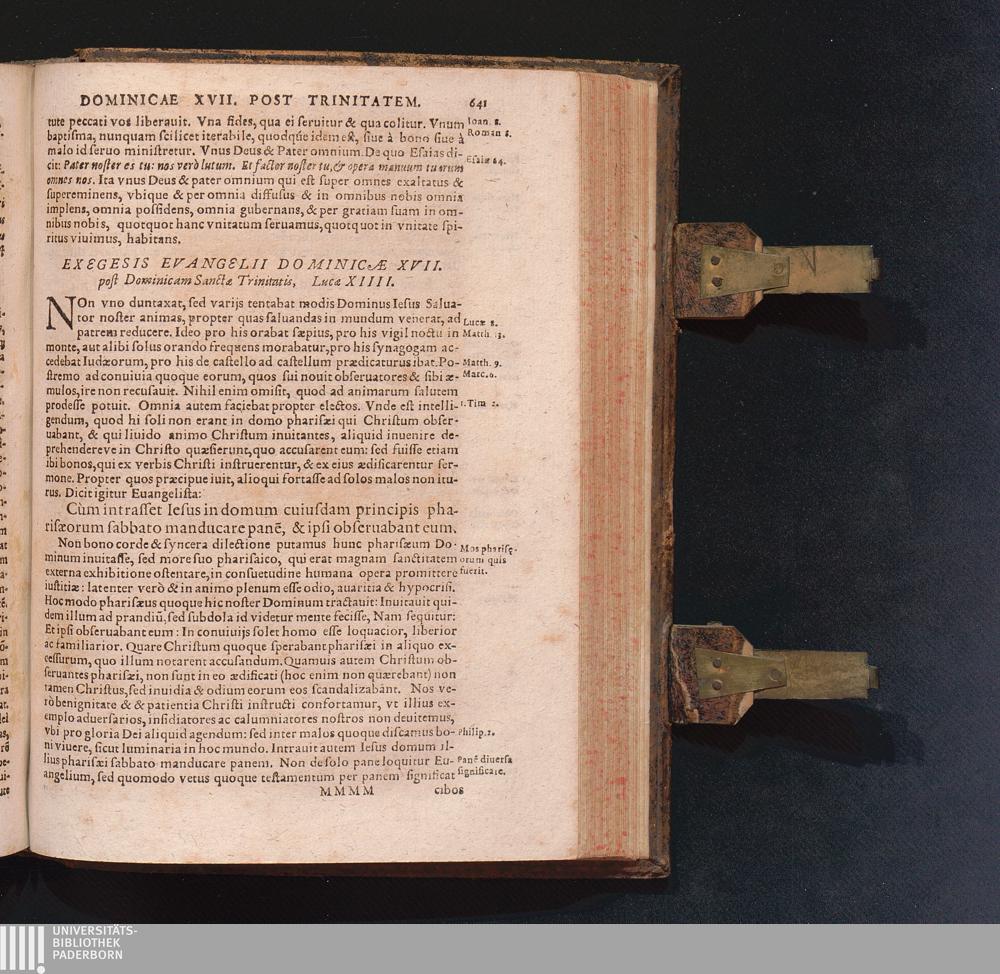 DOMINICAE XVII. POST TRINITATEM. 641
tute peccati vos liberauit. Vna fides, qua ei seruitur & qua colitur. Vnum Ioan. 8.
baptisma, nunquam scilicet iterabile, quodqúe idem est, siue à bono siue à Roman 8.
malo id seruo ministretur. Vnus Deus & Pater omnium. De quo Esaias di-
cit: Pater noster es tu: nos verò lutum. Et factor noster tu, & opera manuum tuarum Esaiæ 64.
omnes nos. Ita vnus Deus & pater omnium qui est super omnes exaltatus &
supereminens, vbique & per omnia diffusus & in omnibus nobis omnia
implens, omnia possidens, omnia gubernans, & per gratiam suam in om-
nibus nobis, quotquot hanc vnitatum seruamus, quotquot in vnitate spi-
ritus viuimus, habitans.
EXEGESIS EVANGELII DOMINICÆ XVII.
post Dominicam Sanctæ Trinitatis, Lucæ XIIII.
NOn vno duntaxat, sed varijs tentabat modis Dominus Iesus Salua-
tor noster animas, propter quas saluandas in mundum venerat, ad
patrem reducere. Ideo pro his orabat sæpius, pro his vigil noctu in Lucæ 8. Matth. 13.
monte, aut alibi solus orando frequens morabatur, pro his synagogam ac-
cedebat Iudæorum, pro his de castello ad castellum prædicaturus ibat. Po- Matth. 9.
stremo ad conuiuia quoque eorum, quos sui nouit obseruatores & sibi æ- Marc. 6.
mulos, ire non recusauit. Nihil enim omisit, quod ad animarum salutem
prodesse potuit. Omnia autem faciebat propter electos. Vnde est intelli- 1. Tim 2.
gendum, quod hi soli non erant in domo pharisæi qui Christum obser-
uabant, & qui liuido animo Christum inuitantes, aliquid inuenire de-
prehendereve in Christo quæsierunt, quo accusarent eum: sed fuisse etiam
ibi bonos, qui ex verbis Christi instruerentur, & ex eius ædificarentur ser-
mone. Propter quos præcipue iuit, alioqui fortasse ad solos malos non itu-
rus. Dicit igitur Euangelista:
Cùm intrasset Iesus in domum cuiusdam principis pha-
risæorum sabbato manducare panē, & ipsi obseruabant eum.
Non bono corde & syncera dilectione putamus hunc pharisæum Do-
minum inuitasse, sed more suo pharisaico, qui erat magnam sanctitatem Mos pharisę-
externa exhibitione ostentare, in consuetudine humana opera promittere orum quis
iustitiæ: latenter verò & in animo plenum esse odio, auaritia & hypocrisi. fuerit.
Hoc modo pharisæus quoque hic noster Dominum tractauit: Inuitauit qui-
dem illum ad prandiū, sed subdola id videtur mente fecisse, Nam sequitur:
Et ipsi obseruabant eum: In conuiuijs solet homo esse loquacior, liberior
ac familiarior. Quare Christum quoque sperabant pharisæi in aliquo ex-
cessurum, quo illum notarent accusandum. Quamuis autem Christum ob-
seruantes pharisæi, non sunt in eo ædificati (hoc enim non quærebant) non
tamen Christus, sed inuidia & odium eorum eos scandalizabant. Nos ve-
rò benignitate & & patientia Christi instructi confortamur, vt illius ex-
emplo aduersarios, insidiatores ac calumniatores nostros non deuitemus,
vbi pro gloria Dei aliquid agendum: sed inter malos quoque discamus bo- Philip. 2.
ni viuere, sicut luminaria in hoc mundo. Intrauit autem Iesus domum il-
lius pharisæi sabbato manducare panem. Non de solo pane loquitur Eu- Panē diuersa
angelium, sed quomodo vetus quoque testamentum per panem significat significare.
MMMM cibos
UNIVERSITÄTS-
BIBLIOTHEK
PADERBORN